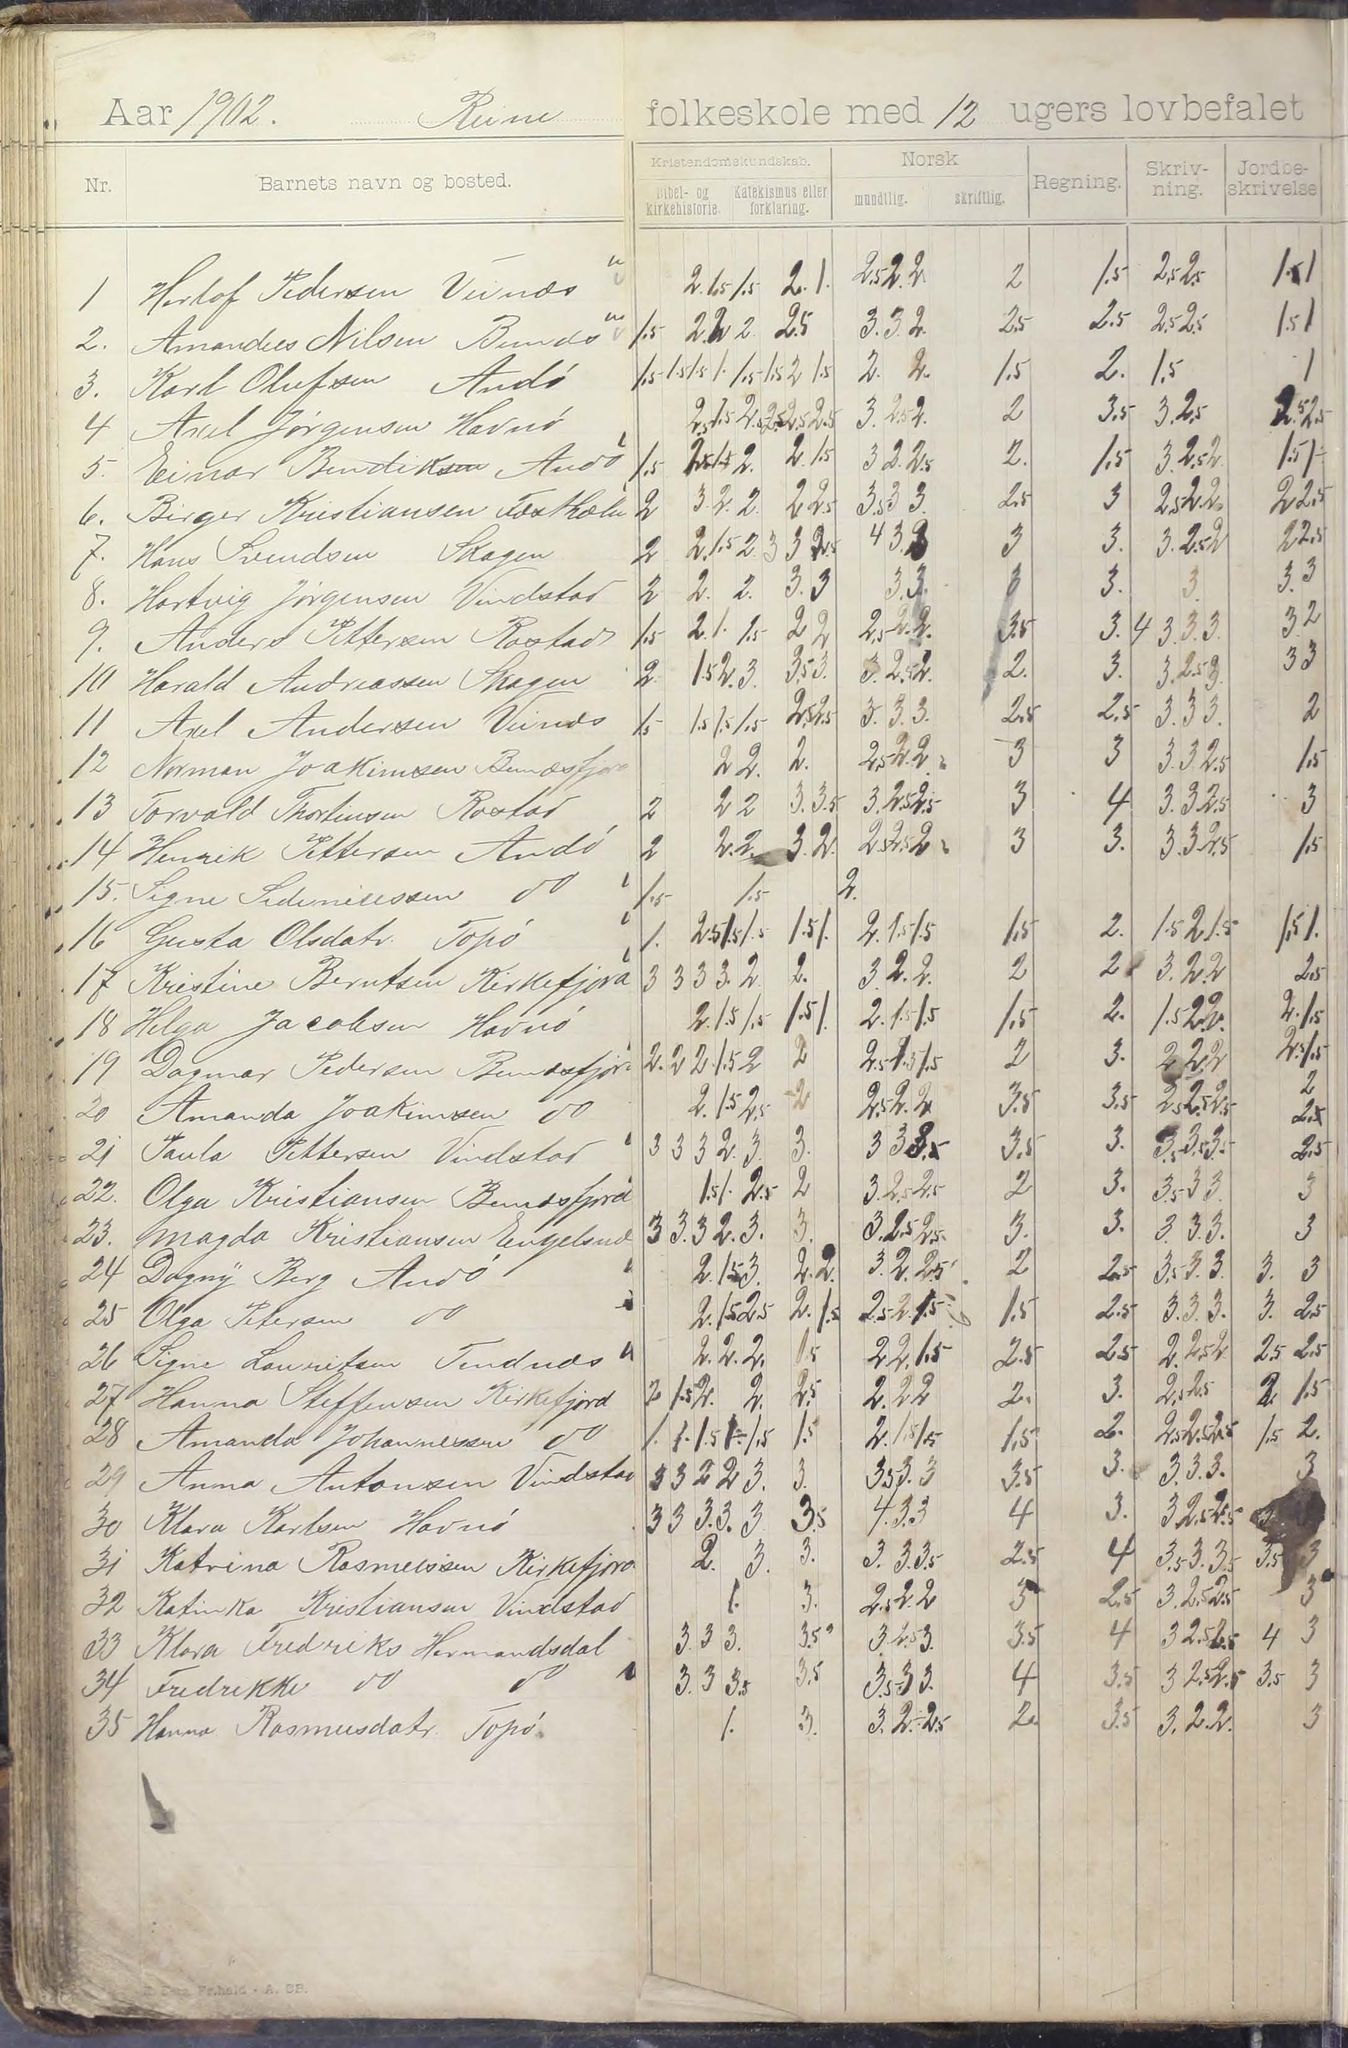 Aar 1902. Reine folkeskole med 12 ugers lovbefalet
Nr. Barnets navn og bosted. Kristendomskundskab. Bibel- og kirkehistorie. Katekismus eller forklaring. Norsk mundtlig. skriftlig. Regning. Skriv-ning. Jordbe-skrivelse
1 Herlof Pedersen Veines 2. 1.5 1.5 2. 1. 2.5 2. 2 2 1.5 2.5 2.5 1.5 1
2. Amandus Nilsen Bundes 1.5 2 2 2 2.5 3. 3. 2. 2.5 2.5 2.5 2.5 1.5 1
3. Karl Olufsen Andö 1.5 1.5 1.5 1. 1.5 1.5 2 1.5 2. 2. 1.5 2. 1.5 1
4 Axel Jörgensen Havnö 2.5 1.5 2.5 2.5 2.5 2.5 3. 2.5 2. 2 3.5 3. 2.5 2.5 2.5
5. Einar Bendiksen Andö 1.5 2.5 1.5 2. 2. 1.5 3 2. 2.5 2. 1.5 3. 2.5 2 1.5 1
6. Birger Kristiansen 2 3. 2. 2 2 2.5 3.5 3 3. 2.5 3 2.5 2. 2. 2 2.5
7. Hans Svendsen Skagen 2 2. 1.5 2 3 3 2.5 4 3. 3 3 3. 3. 2.5 2 2 2.5
8. Hartvig Jörgensen Vindstad 2 2. 2. 3. 3 3. 3. 3 3. 3. 3. 3
9. Anders Pettersen Rostad 1.5 2. 1. 1.5 2 2 2.5 2. 2. 3.5 3. 4 3. 3. 3. 3 2
10 Harald Andreassen Skagen 2. 1.5 2. 3. 3.5 3. 3. 2.5 2. 2. 3. 3. 2.5 3. 3 3
11 Axel Andersen Veines 1.5 1.5 1.5 1.5 2.5 2.5 3. 3. 3. 2.5 2.5 3. 3 3. 2
12 Norman Joakimsen Bundesfjord 2 2. 2. 2.5 2. 2. 3 3 3. 3. 2.5 1.5
13 Torvald Thortinsen Rostad 2 2 2 3. 3.5 3. 2.5 2.5 3 4 3. 3. 2.5 3
14 Henrik Pettersen Andö 2 2. 2. 3. 2. 2.5 2.5 2 3 3. 3. 3. 2.5 1.5
15. Signe do 1.5 1.5 2.
16 Gusta Olsdatr. Topö 1. 2.5 1.5 1.5 1.5 1. 2. 1.5 1.5 1.5 2. 1.5 2 1.5 1.5 1.
17 Kristine Berntsen Kirkefjord 3 3 3 3. 2. 2. 3. 2. 2. 2 2 3. 2. 2 2.5
18 Helga Jacobsen Havnö 2. 1.5 1.5 1.5 1. 2. 1.5 1.5 1.5 2. 1.5 2 2. 2. 1.5
19 Dagmar Pedersen Bundesfjord 2. 2 2. 1.5 2 2 2.5 1.5 1.5 2 3. 2 2. 2 2.5 1.5
20 Amanda Joakimsen do 2. 1.5 2.5 2 2.5 2. 2 3.5 3.5 2.5 2.5 2.5 2 2.5
21 Paula Pettersen Vindstad 3 3 3 2. 3. 3. 3 3 3.5 3.5 3. 3.5 3.5 3.5 2.5
22. Olga Kristiansen Bundesfjord 1.5 1. 2.5 2 3. 2.5 2.5 2 3. 3.5 3 3. 3
23. Magda Kristiansen 3 3. 3 2. 3. 3. 3. 2.5 2.5 3. 3. 3. 3. 3. 3
24 Dagny Berg Andö 2. 1.5 3. 2. 2. 3. 2. 2.5 2 2.5 3.5 3. 3. 3. 3
25 Olga Petersen do 2. 1.5 2.5 2. 1.5 2.5 2. 1.5 1.5 2.5 3. 3. 3. 3. 2.5
26 Signe Lauritsen Tendnes 2. 2. 2. 1.5 2 2. 1.5 2.5 2.5 2. 2.5 2 2.5 2.5
27 Hanna Steffensen Kirkefjord 2 1.5 2. 2. 2.5 2. 2 2 2. 3. 2.5 2.5 2. 1.5
28 Amanda Johannessen do 1. 1. 1.5 1. 1.5 1.5 2. 1.5 1.5 1.5 2. 2.5 2.5 2.5 1.5 2.
29 Anna Antonsen Vindstad 3 3 2 2 3. 3. 3.5 3. 3 3.5 3. 3. 3. 3. 3
30 Klara Karlsen Havnö 3 3 3. 3. 3 3.5 4. 3. 3 4 3. 3 2.5 2.5
31 Katrina Rasmussen Kirkefjord 2. 3. 3. 3. 3. 3.5 2.5 4 3.5 3. 3.5 3.5 3
32 Katinka Kristiansen Vindstad 1. 3. 2.5 2. 2 3 2.5 3. 2.5 2.5 3
33 Klara Fredriks Hermandsdal 3. 3 3. 3.5 3. 2.5 3. 3.5 4 3 2.5 2.5 4 3
34 Fredrikke do do 3. 3 3.5 3.5 3.5 3 3. 4 3.5 3 2.5 2.5 3.5 3
35 Hanna Rasmusdatr. Topö. 1. 3. 3. 2. 2.5 2. 3.5 3. 2. 2. 3